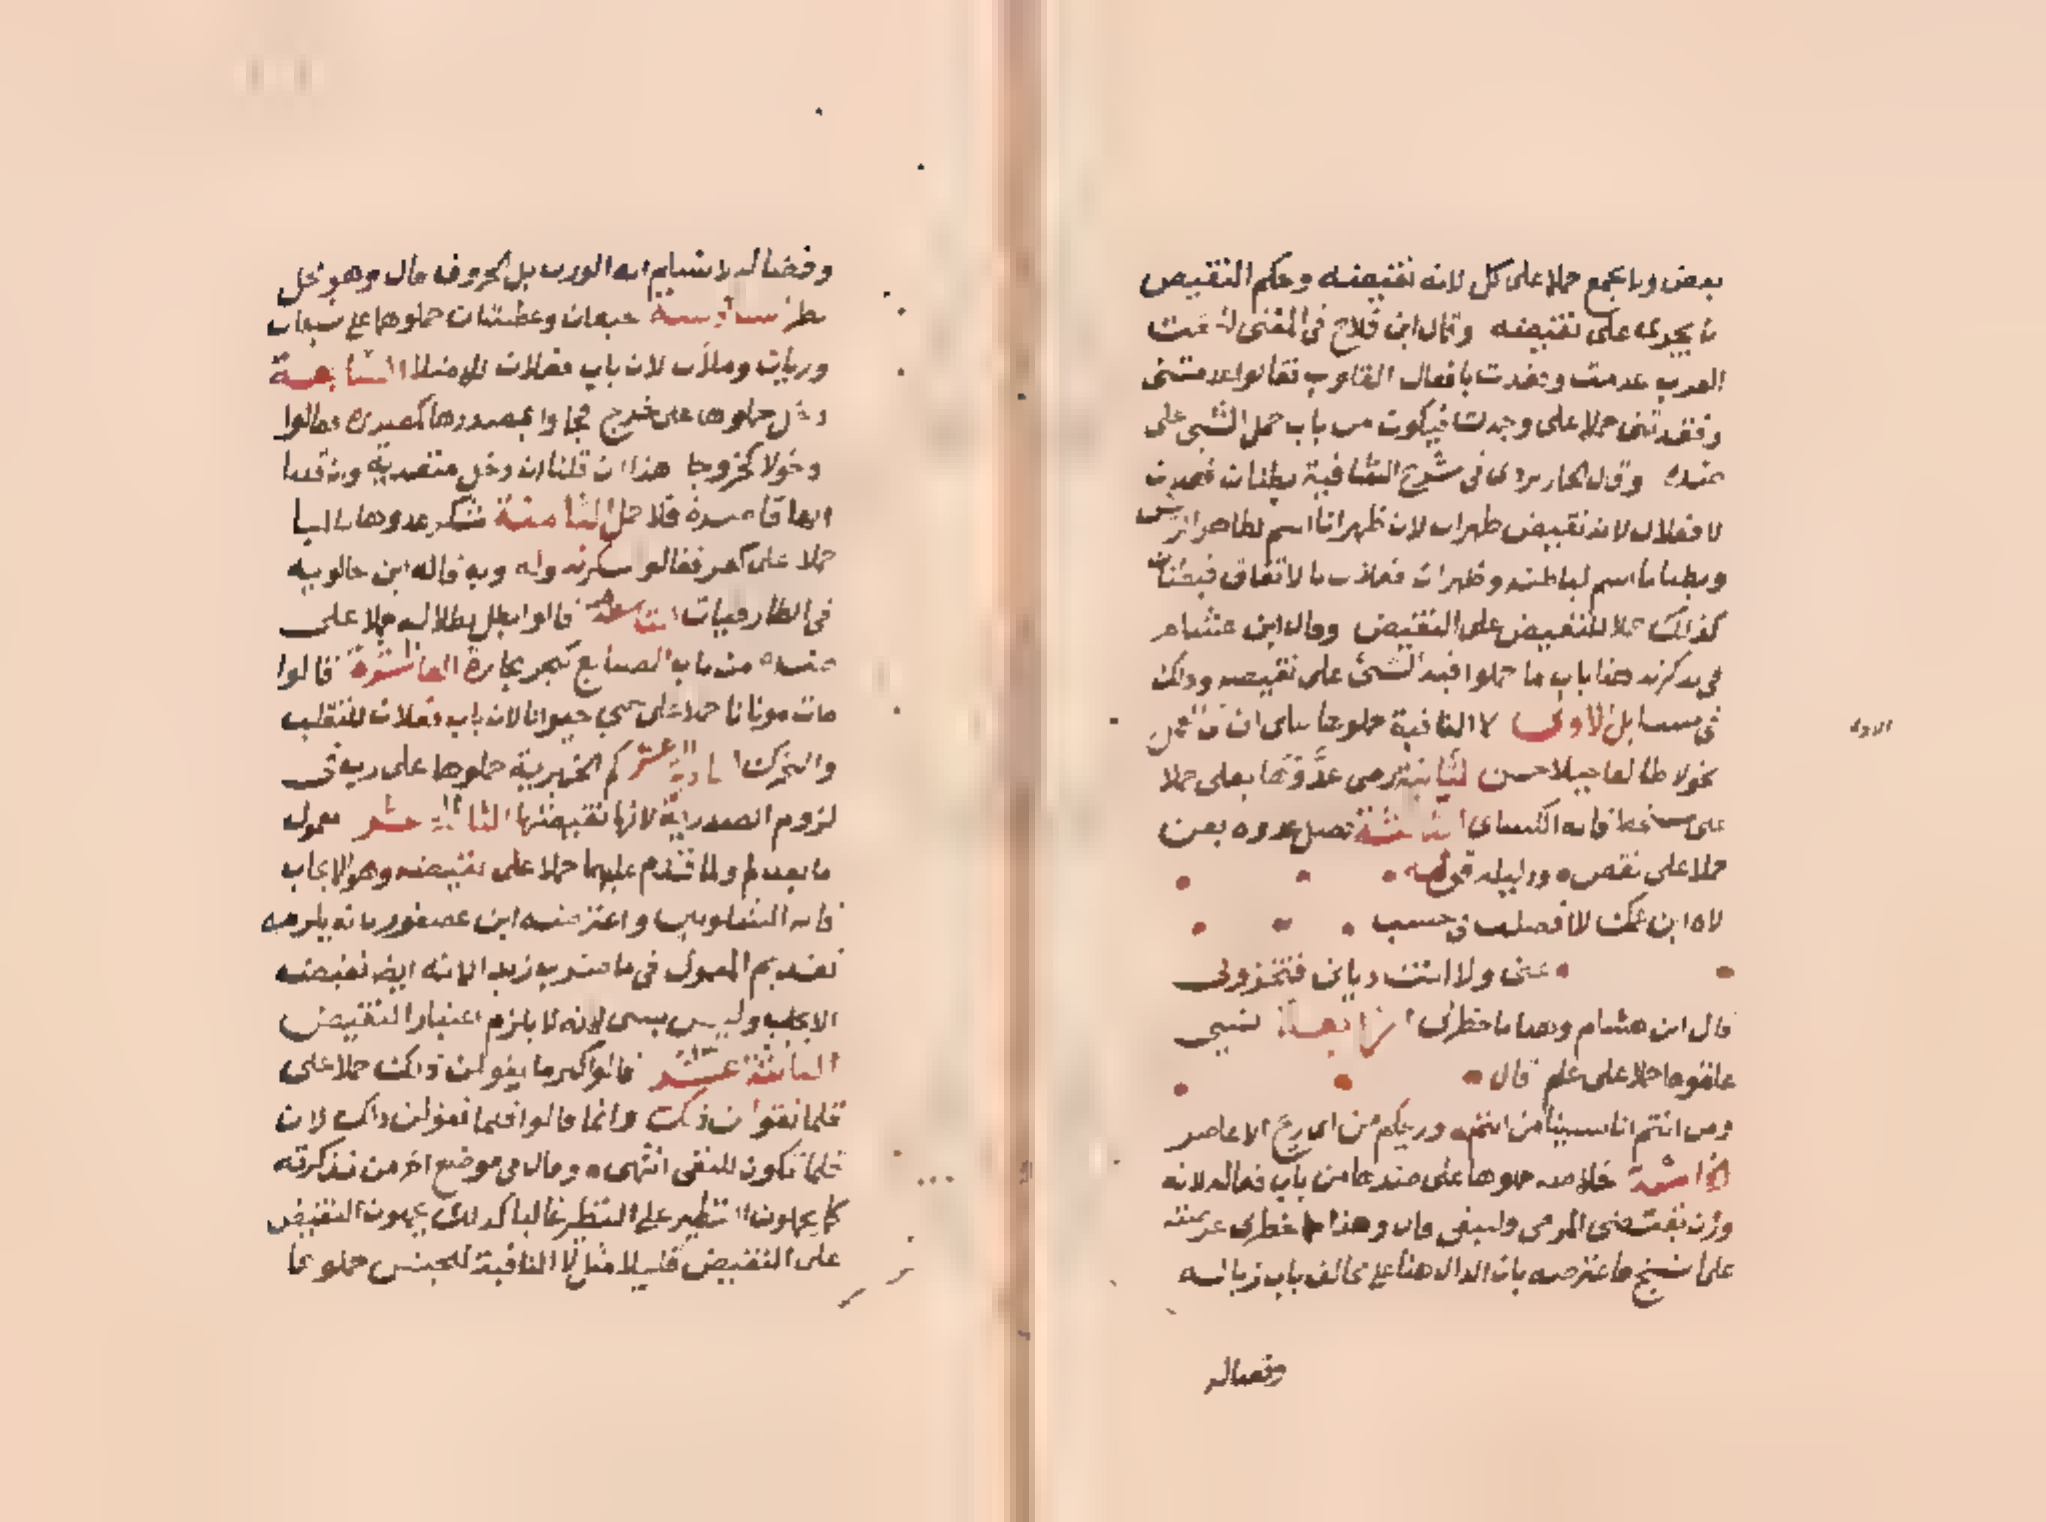 بعض وباجمع حملا على كل لانه نقيضه وحكم النقيض
ان يجرى على نقيضه وقال ابن فلاح فى المغنى
العرب عدمت وفقدت بافعال القلوب فقالوا عدمتنى
وفقدتنى حملا على وجدت فيكون من باب حمل الشى على
ضده وقال الجاربردى فى شرح الشافية بطنان
لا فعلال لانه نقيض ظهران لان ظهرانا اسم لظاهر الريش
وبطنانا اسم لباطنه وظهران فعلان بالاتفاق فبطنان
كذلك حملا للنقيض على النقيض وقال ابن هشام
فى تذكرته هذا باب ما حملوا فيه الشئ على نقيضه وذلك
فى مسايل الاولى لا النافية حملوها على ان فى العمل
نحو لا طالعا جبلا حسن الثانية رضى عدوها بعلى حملا
على سخط قاله الكساى الثالثة فضل عدوه بعن
حملا على نقص ودليله قوله
لاه ابن عمك لا افضلت فى حسب
عنى ولا انت ديانى فتخزونى
قال ابن هشام وهذا ما خطر لى الرابعة نسى
علقوها حملا على علم قال
ومن انتم انا نسينا من انتم وريحكم من اى ريح الاعاصر
الخامسة خلاصه حملوها على ضدها من باب فعاله لانه
وزن نقيضى المرمى والمنفى قال وهذا خطر لى عرضته
على الشيخ فاعترضه بان الدال هنا على خالف باب زبالسه
وفضاله
الاولى
وفضاله لا شيام انه الوزن بل الحروف قال وهو نحل
نظر السادسة جيعان وعطشان حملوها على شبعان
وريان وملآن لان باب فعلان للامتلا السابعة
دخل حملوها على خرج فجاوا بمصدرها كمصدره فقالوا
دخولا كخروجا هذا ان قلنا ان دخل متعدية وان قلنا
انها قاصرة فلا حمل الثامنة شكر عدوها بالبا
حملا على كفر فقالوا شكرته وله وبه قاله ابن خالويه
فى الطارقيات التاسعة قالوا بطل بطالة حملا على
ضده من باب الصنايع كنجر نجارة العاشرة قالوا
مات موتانا حملا على حيى حيوانا لان باب فعلان للتقلب
والتحرك الحادية عشر كم الخبرية حملوها على رب فى
لزوم الصدرية لانها نقيضتها الثانية عشر معمول
ما بعد لم ولما قدم عليهما حملا على نقيضه وهو الايجاب
قاله الشلوبين واعترضه ابن عصفور بانه يلزمه
تقديم المعمول فى ما ضرب زيد لانه ايضا نقيضه
الايجاب وليس بشى لانه لا يلزم اعتبار النقيض
الثالثة عشر قالوا كثر ما يقولن ذلك حملا على
قلما نقولن ذلك وانما قالوا قلما تقولن ذلك لان
قلما تكون للنفى انتهى وقال فى موضع اخر من تذكرته
كما يحملون النظير على النظير غالبا كذلك يحملون النقيض
على النقيض قليلا مثل لا النافية للجنس حملوها